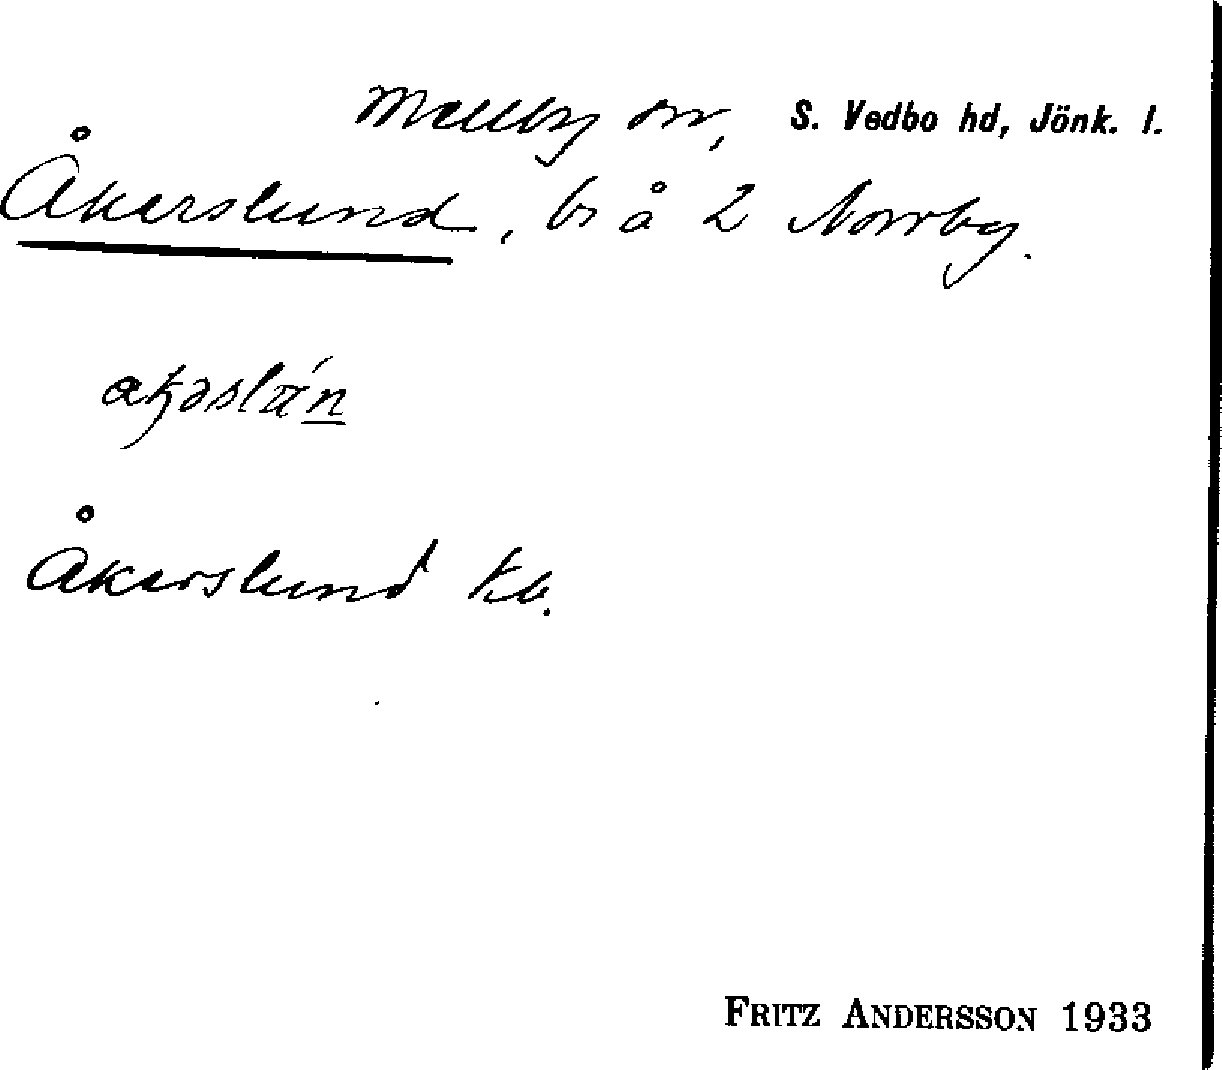 Mellby sn, S. Vedbo hd, Jönk. l.
Åkerslund, br å 2 Norrby.
Åkerslund kb.
FRITZ ANDERSSON 1933